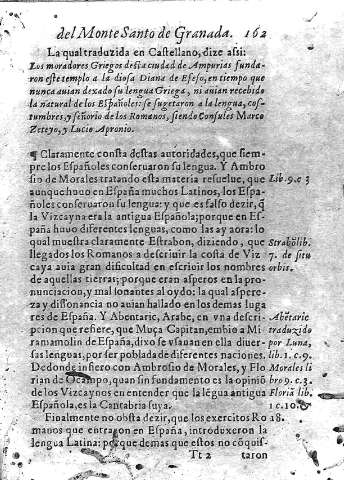 del Monte Santo de Granada. 162
La qual traduzida en Castellano, dize assi:
Los moradores Griegos desta ciudad de Ampurias funda-
ron este templo a la diosa Diana de Efeso, en tiempo que
nunca auian dexado su lengua Griega, ni auian recebido
la natural de los Españoles: se sugetaron a la lengua, cos-
tumbres, y señorio de los Romanos, siendo Consules Marco
Zeteyo, y Lucio Apronio.
¶ Claramente consta destas autoridades, que siem-
pre los Españoles conseruaron su lengua. Y Ambro
sio de Morales tratando esta materia resuelue, que Lib. 9. c 3
aunque huuo en España muchos Latinos, los Espa-
ñoles conseruaron su lengua: y que es falso dezir, q̃
la Vizcayna era la antigua Española; porque en Es-
paña huuo diferentes lenguas, como las ay aora: lo
qual muestra claramente Estrabon, diziendo, que Strabõ lib.
llegados los Romanos a descriuir la costa de Viz 7. de situ
caya auia gran dificultad en escriuir los nombres orbis.
de aquellas tierras; porque eran asperos en la pro-
nunciacion, y mal sonantes al oydo: la qual aspere-
za y dissonancia no auian hallado en los demas luga
res de España. Y Abentaric, Arabe, en vna descri- Abẽtario
pcion que refiere, que Muça Capitan, embio a Mi traduzido
ramamolin de España, dixo se vsauan en ella diuer- por Luna,
sas lenguas, por ser poblada de diferentes naciones. lib. 1. c. 9.
De donde infiero con Ambrosio de Morales, y Flo Morales li
rian de Ocampo, quan sin fundamento es la opiniõ bro 9. c. 3.
de los Vizcaynos en entender que la lẽgua antigua Floriã lib.
Española, es la Cantabria suya. 1 c. 10.
Finalmente no obsta dezir, que los exercitos Ro 18.
manos que entraron en España, introduxeron la
lengua Latina: porque demas que estos no cõquis-
Tt 2 taron